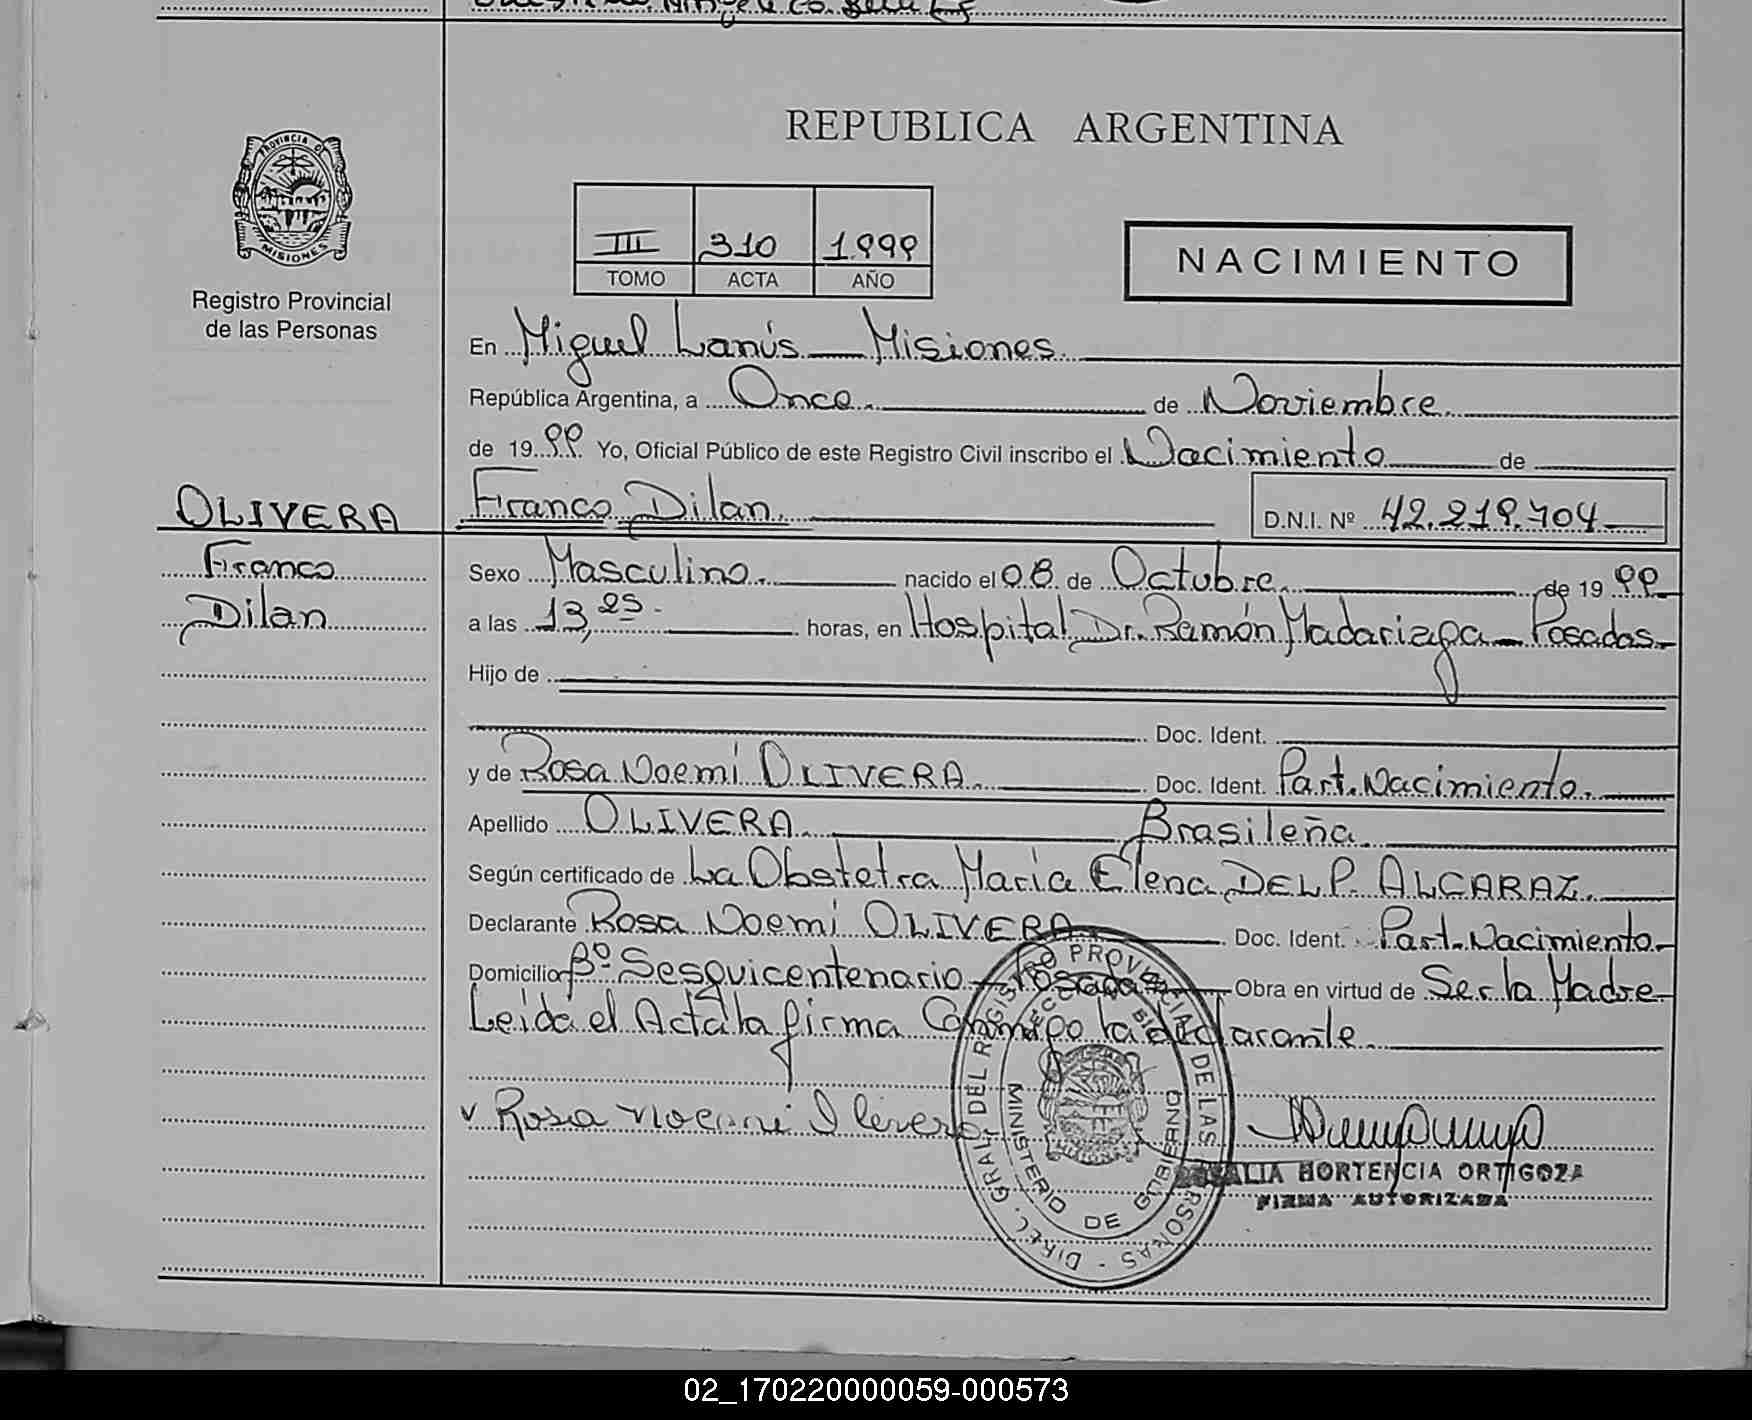 REPUBLICA ARGENTINA
PROVINCIA D
MISIONES
Registro Provincial
de las Personas
III 310 1.999
TOMO ACTA AÑO
NACIMIENTO
En Miguel Lanús Misiones
República Argentina, a Once de Noviembre
de 19 99 Yo, Oficial Público de este Registro Civil inscribo el Nacimiento de
OLIVERA
Franco
Dilan
Franco Dilan D.N.I. Nº 42.219.704
Sexo Masculino. nacido el 08 de Octubre de 19 99
a las 13,25 horas, en Hospital Dr. Ramón Madariaga - Posadas
Hijo de
Doc. Ident.
y de Rosa Noemi OLIVERA. Doc. Ident. Part. Nacimiento.
Apellido OLIVERA. Brasileña
Según certificado de La Obstetra Maria Elena DEL P. ALCARAZ.
Declarante Rosa Noemi OLIVERA. Doc. Ident. Part. Nacimiento.
Domicilio Bº Sesquicentenario - Posadas Obra en virtud de Ser la Madre
Leida el Acta la firma Conmigo la declarante.
v Rosa Noemi Olivera
DIREL. GRAL. DEL REGISTRO PROVINCIAL DE LAS PERSONAS
MINISTERIO DE GOBIERNO
HORTENCIA ORTIGOZA
FIRMA AUTORIZADA
02_170220000059-000573